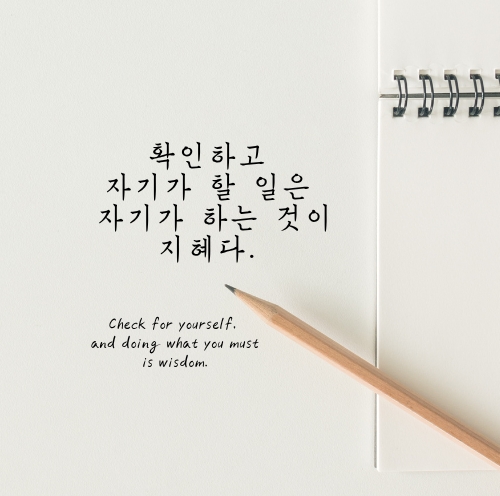 확인하고
자기가 할 일은
자기가 하는 것이
지혜다.
Check for yourself,
and doing what you must
is wisdom.